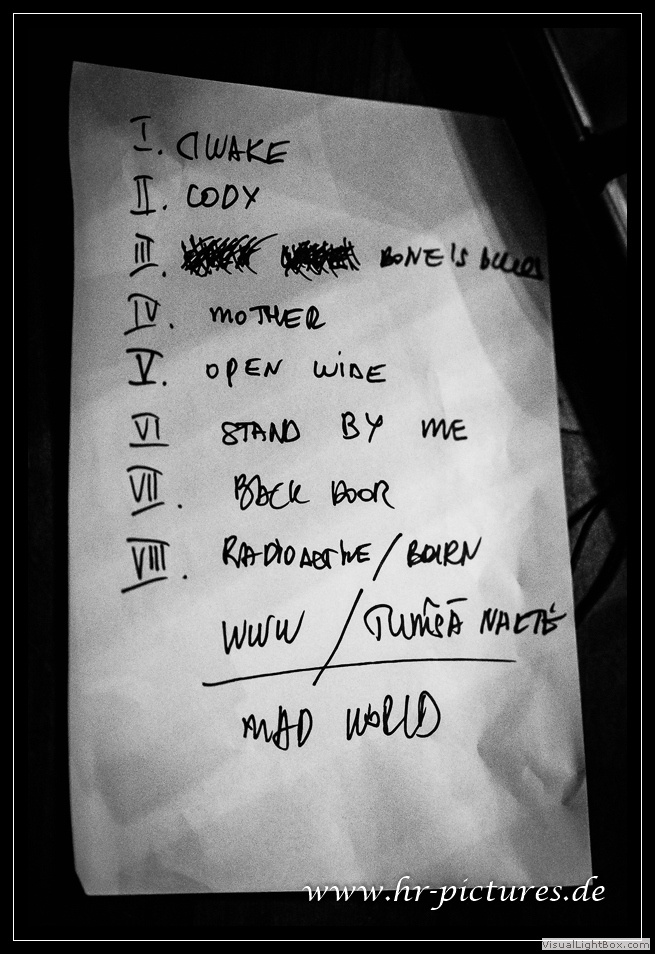 I. AWAKE
II. CODY
III. BONE'S blues
IV. MOTHER
V. OPEN WIDE
VI STAND BY ME
VII. BACK DOOR
VIII. RADIOACTIVE / BOURN
WWW / TUMŠĀ NAKTĪ
MAD WORLD
www.hr-pictures.de
VisualLightBox.com